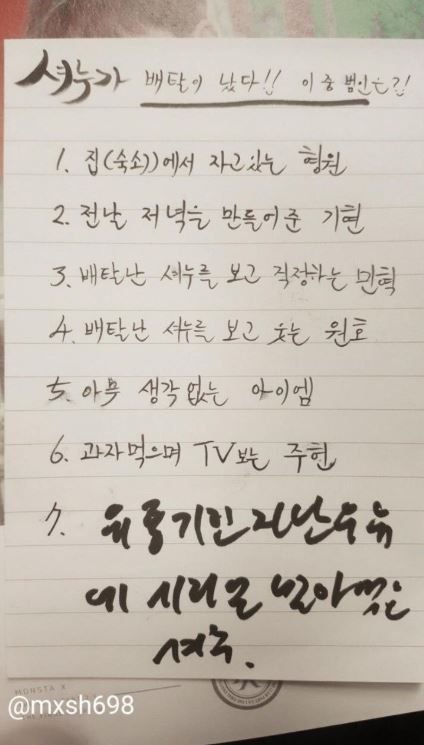 셔누가 배탈이 났다!! 이 중 범인은?!
1. 집(숙소)에서 자고있는 형원
2. 전날 저녁을 만들어준 기현
3. 배탈난 셔누를 보고 걱정하는 민혁
4. 배탈난 셔누를 보고 웃는 원호
5. 아무 생각없는 아이엠
6. 과자먹으며 TV보는 주헌
7. 유통기한 지난우유
에 시리얼 말아먹은
셔누.
MONSTA X
@mxsh698